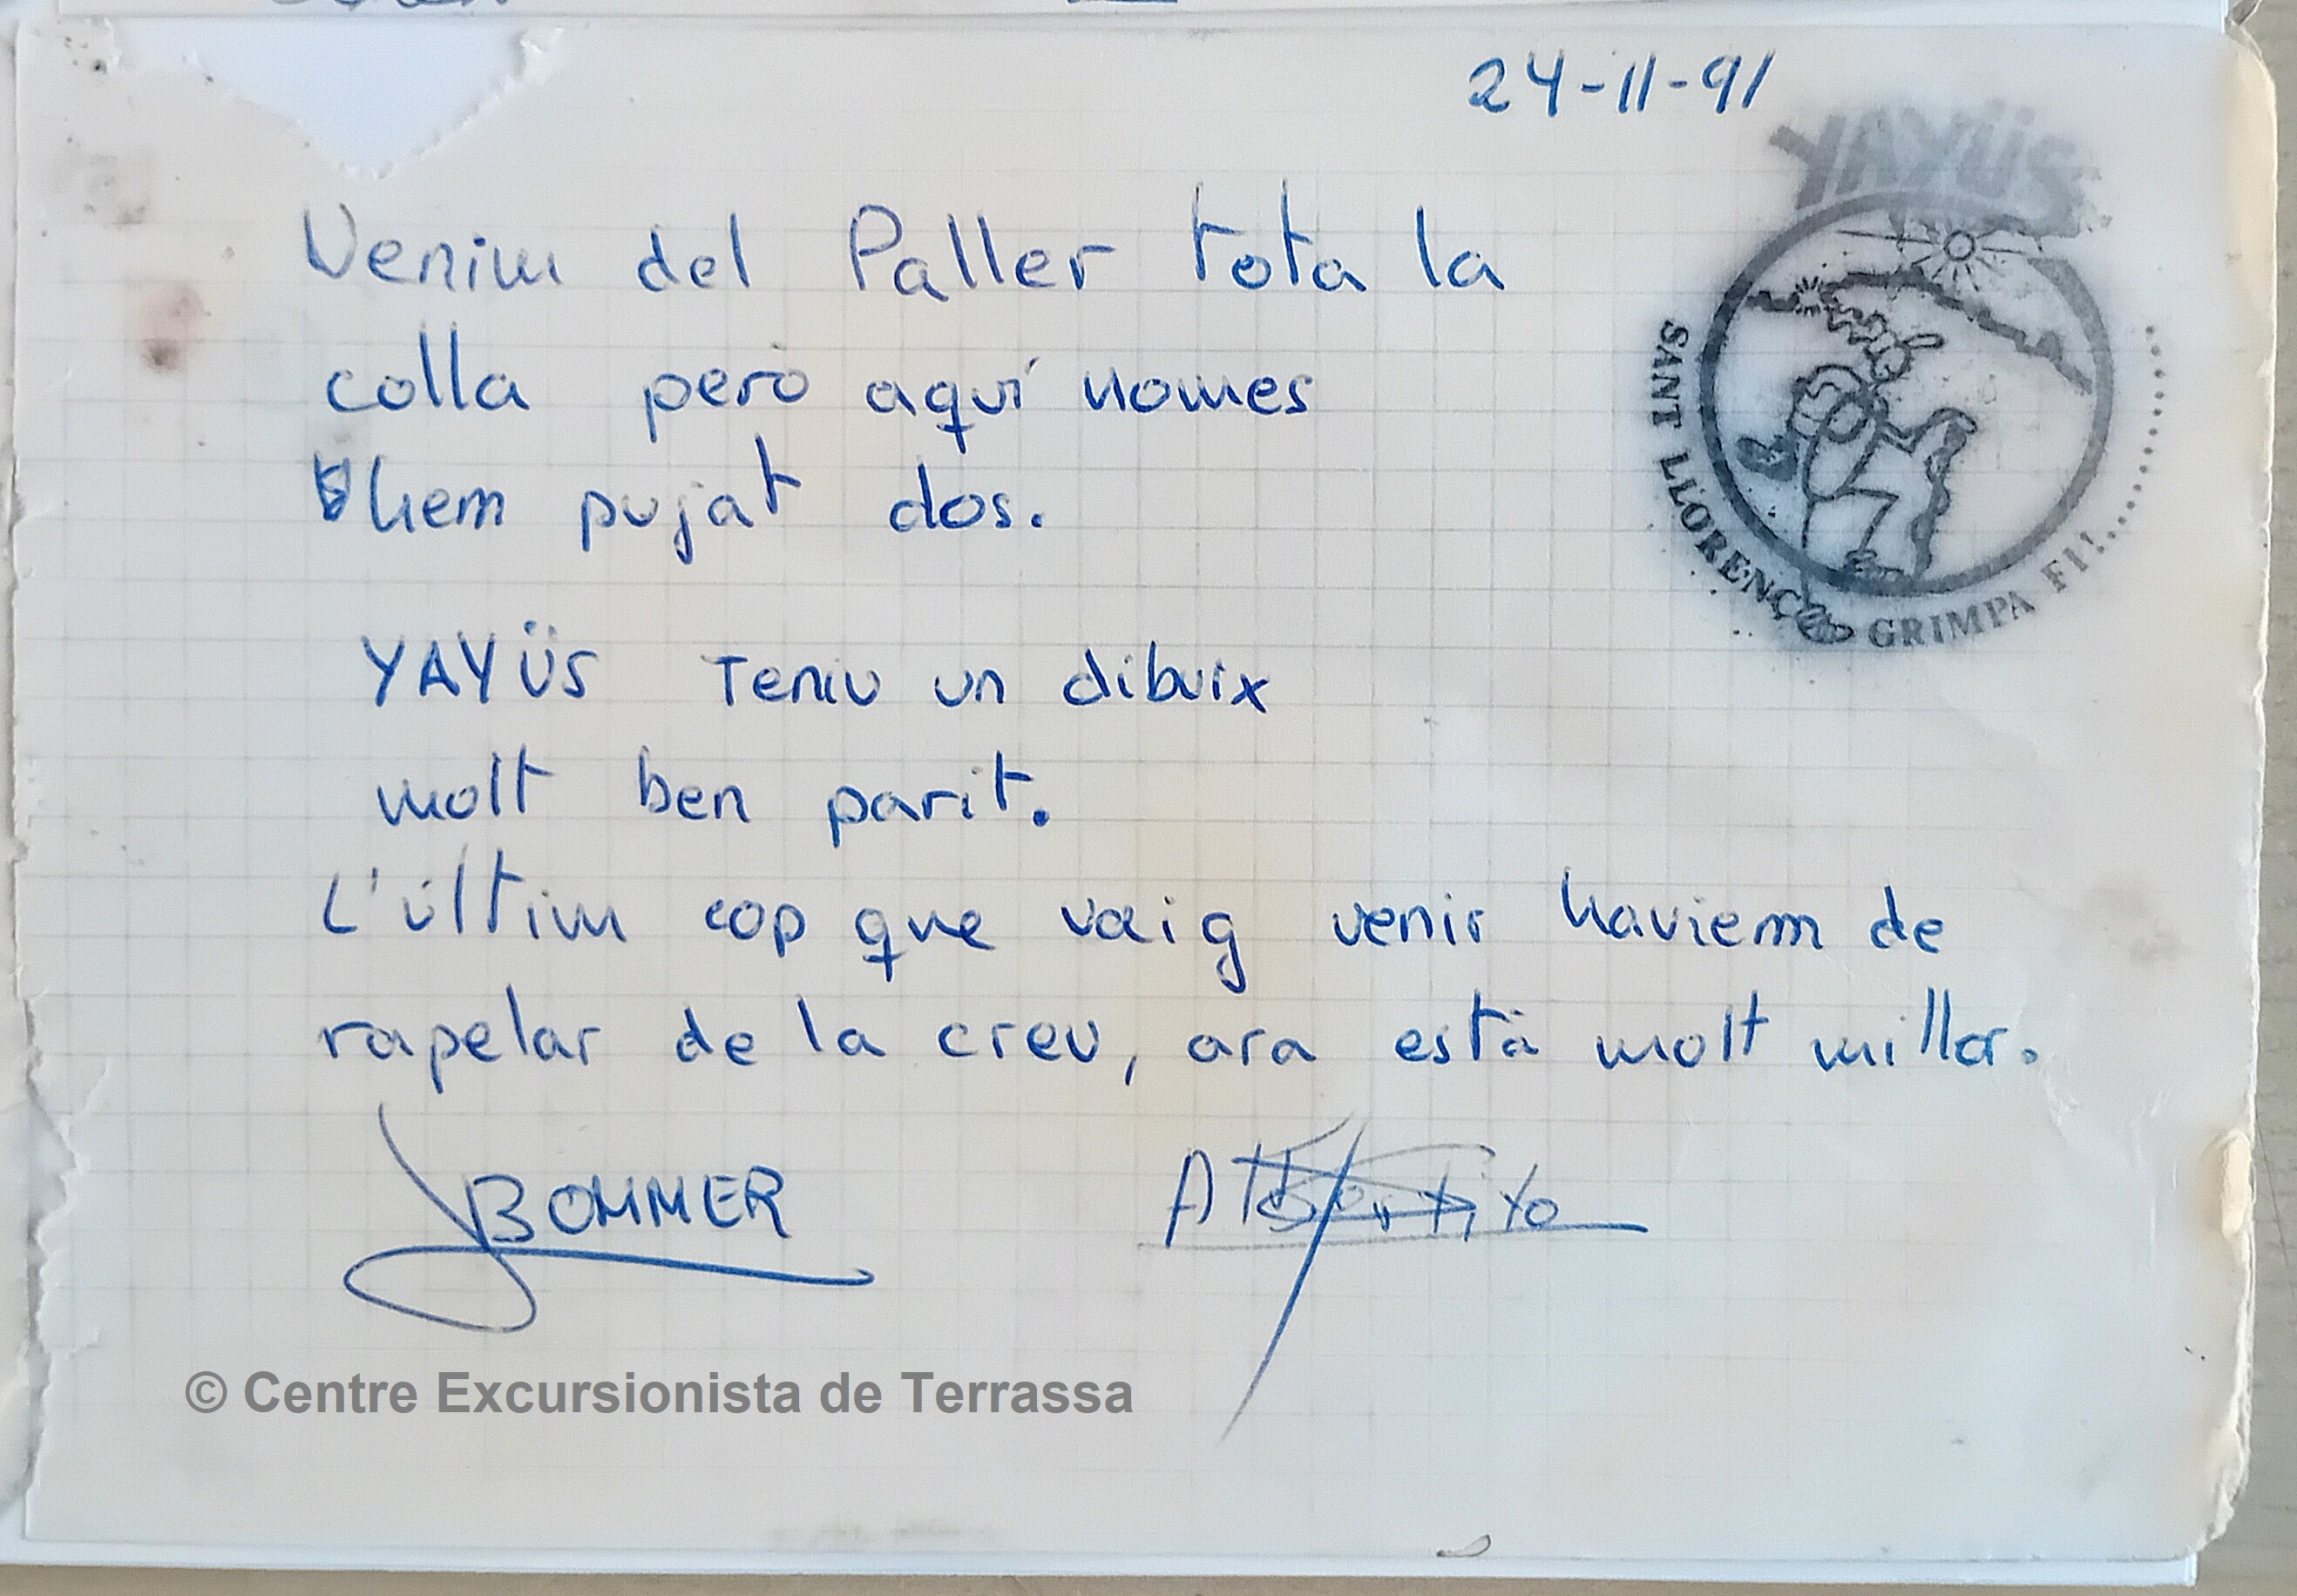 24-11-91
YAYÜS
SANT LLORENÇ GRIMPA FI!..............
Venim del Paller tota la
colla però aquí nomes
hem pujat dos.
YAYÜS Teniu un dibuix
molt ben parit.
L'últim cop que vaig venir haviem de
rapelar de la creu, ara està molt millor.
BOMMER
© Centre Excursionista de Terrassa